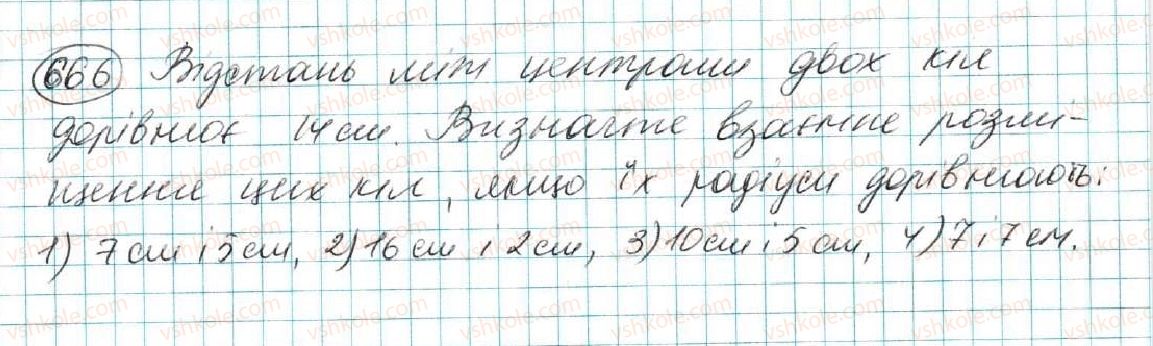 666 Відстань між центрами двох кіл
дорівнює 14 см. Визначте взаємне розмі-
щення цих кіл, якщо їх радіуси дорівнюють:
1) 7 см і 5 см, 2) 16 см і 2 см, 3) 10 см і 5 см, 4) 7 і 7 см.